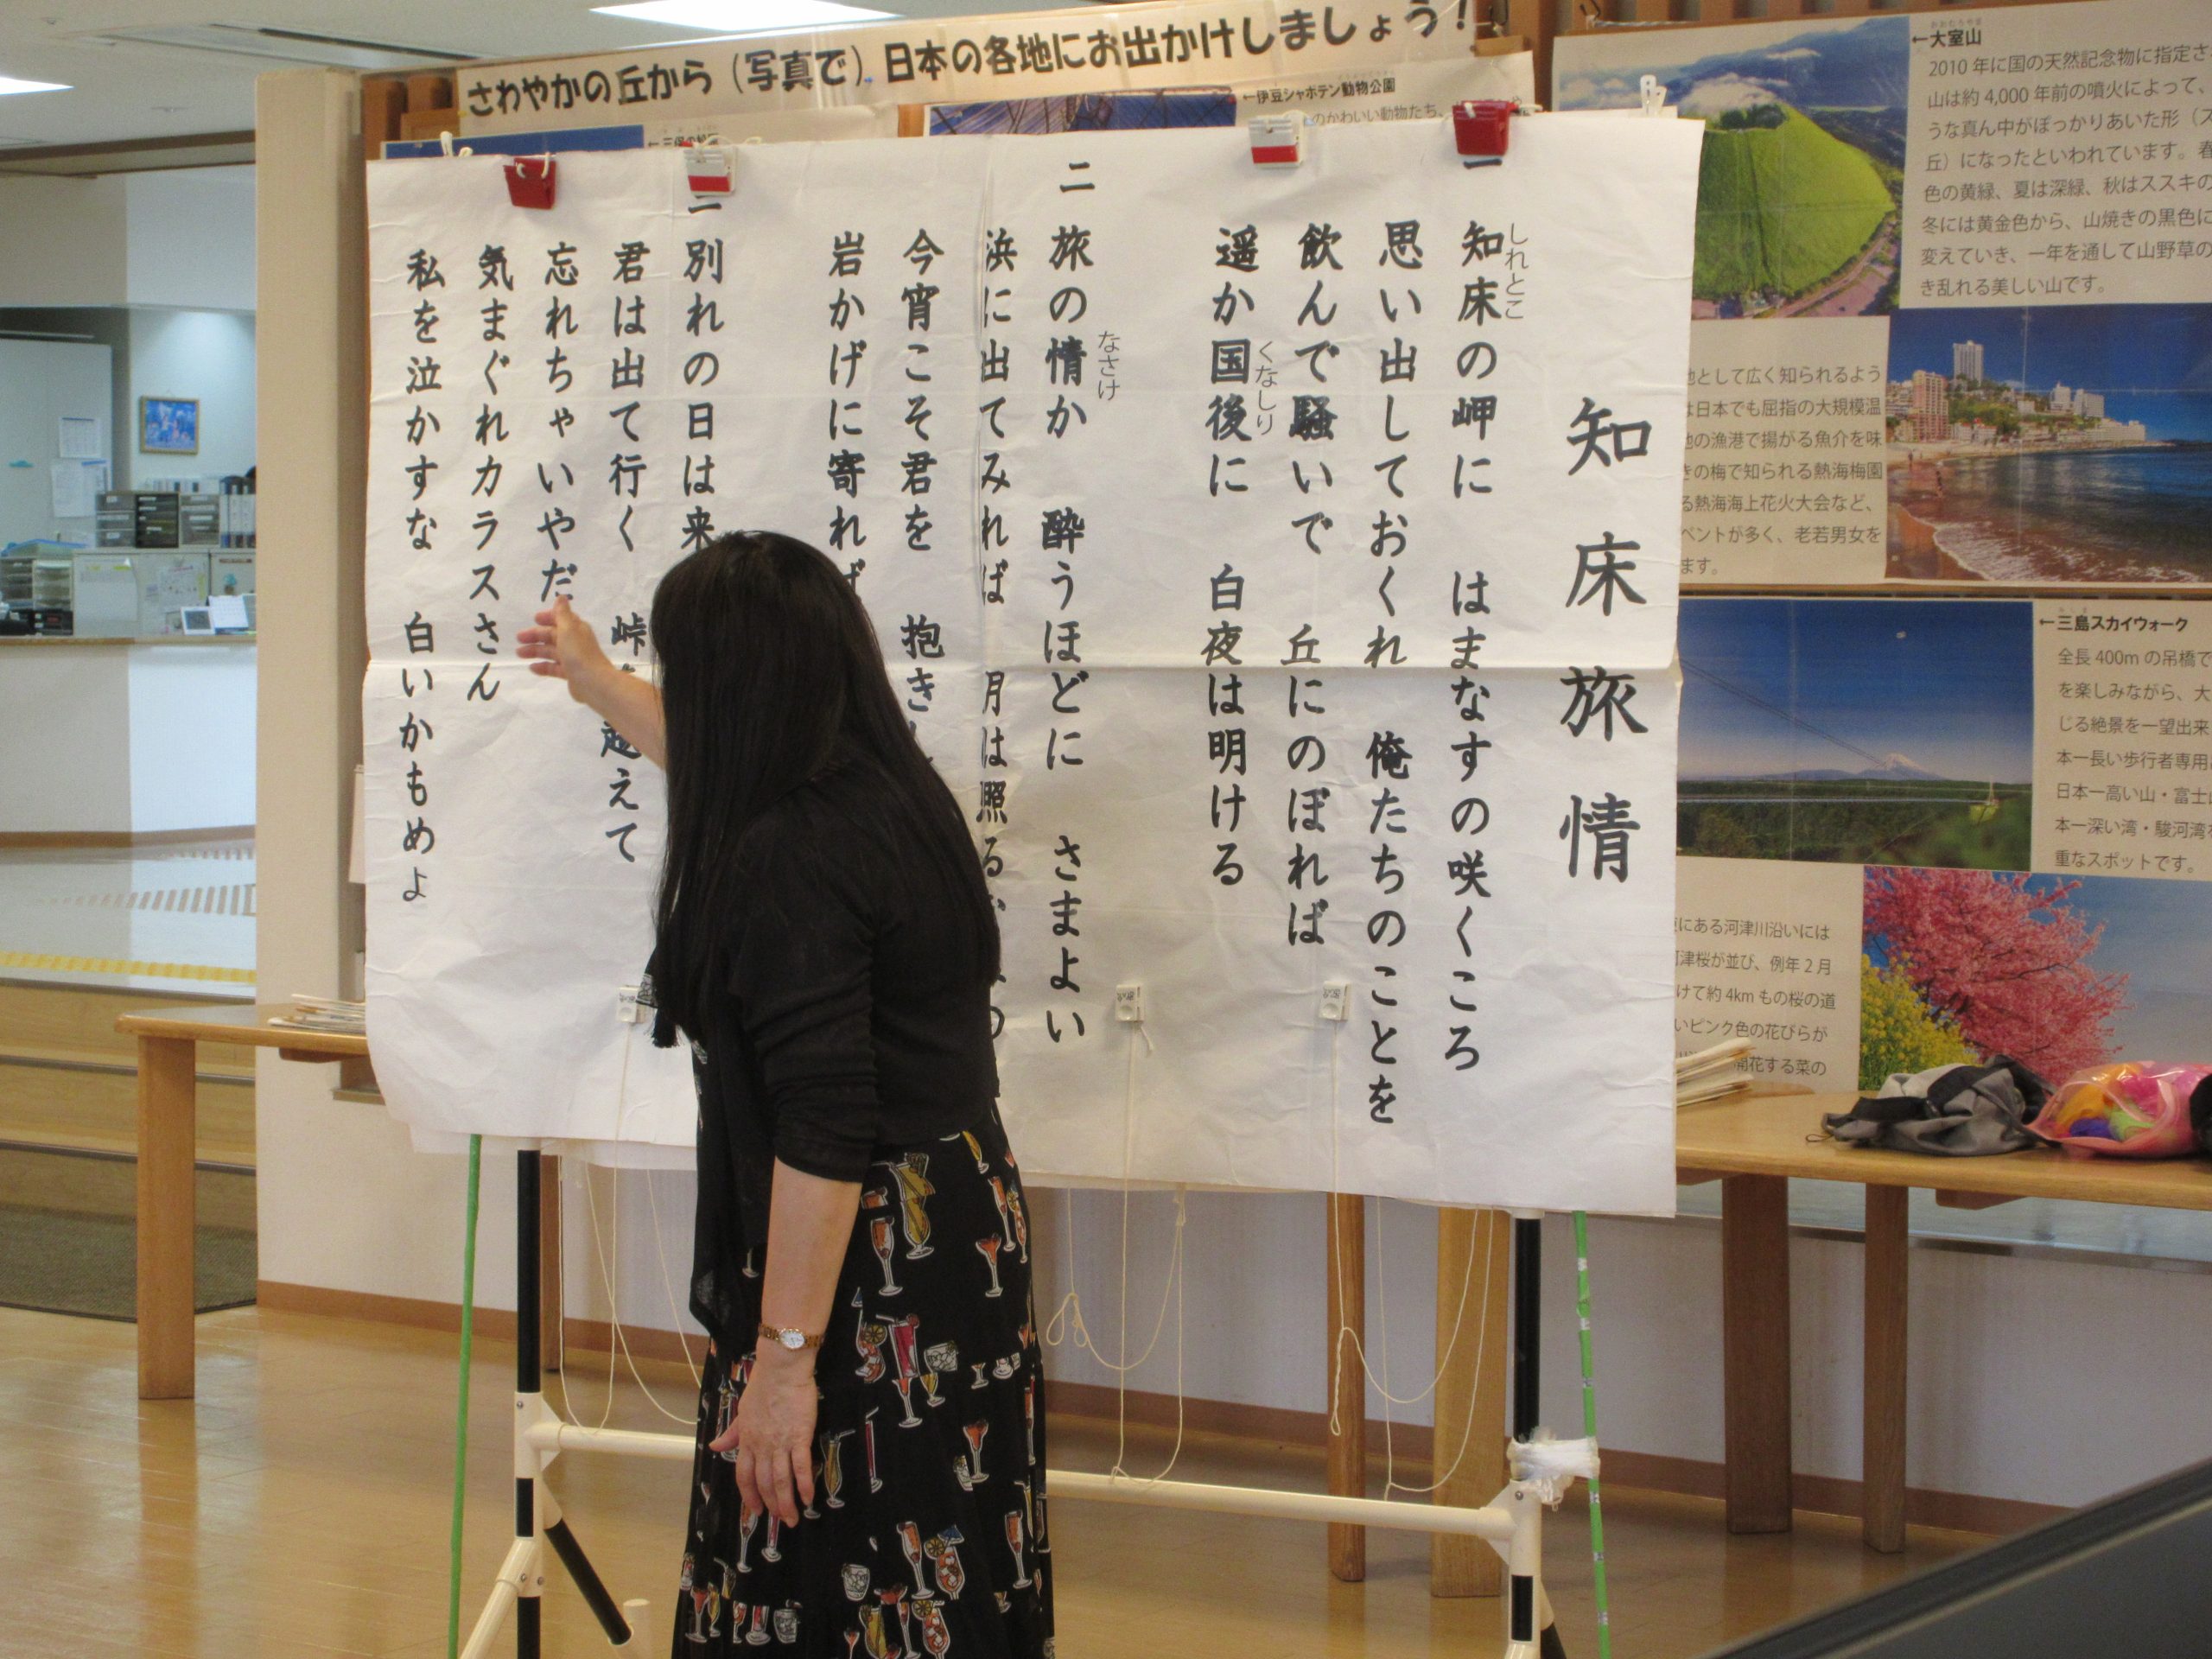 さわやかの丘から（写真で）日本の各地にお出かけしましょう！
知床旅情
しれとこ
知床の岬に　はまなすの咲くころ
思い出しておくれ　俺たちのことを
飲んで騒いで　丘にのぼれば
くなしり
遥か国後に　白夜は明ける
二
なさけ
旅の情か　酔うほどに　さまよい
浜に出てみれば　月は照る
今宵こそ君を　抱き
岩かげに寄れば
別れの日は来
君は出て行く　峠　越えて
忘れちゃいやだ
気まぐれカラスさん
私を泣かすな　白いかもめよ
←伊豆シャボテン動物公園
のかわいい動物たち、
←大室山
2010年に国の天然記念物に指定さ
山は約4,000年前の噴火によって、
うな真ん中がぽっかりあいた形（ス
丘）になったといわれています。春
色の黄緑、夏は深緑、秋はススキの
冬には黄金色から、山焼きの黒色に
変えていき、一年を通して山野草の
き乱れる美しい山です。
地として広く知られるよう
は日本でも屈指の大規模温
地の漁港で揚がる魚介を味
きの梅で知られる熱海梅園
る熱海海上花火大会など、
ベントが多く、老若男女を
ます。
←三島スカイウォーク
全長400mの吊橋で
を楽しみながら、大
じる絶景を一望出来
本一長い歩行者専用
日本一高い山・富士山
本一深い湾・駿河湾
重なスポットです。
にある河津川沿いには
河津桜が並び、例年2月
けて約4kmもの桜の道
いピンク色の花びらが
開花する菜の